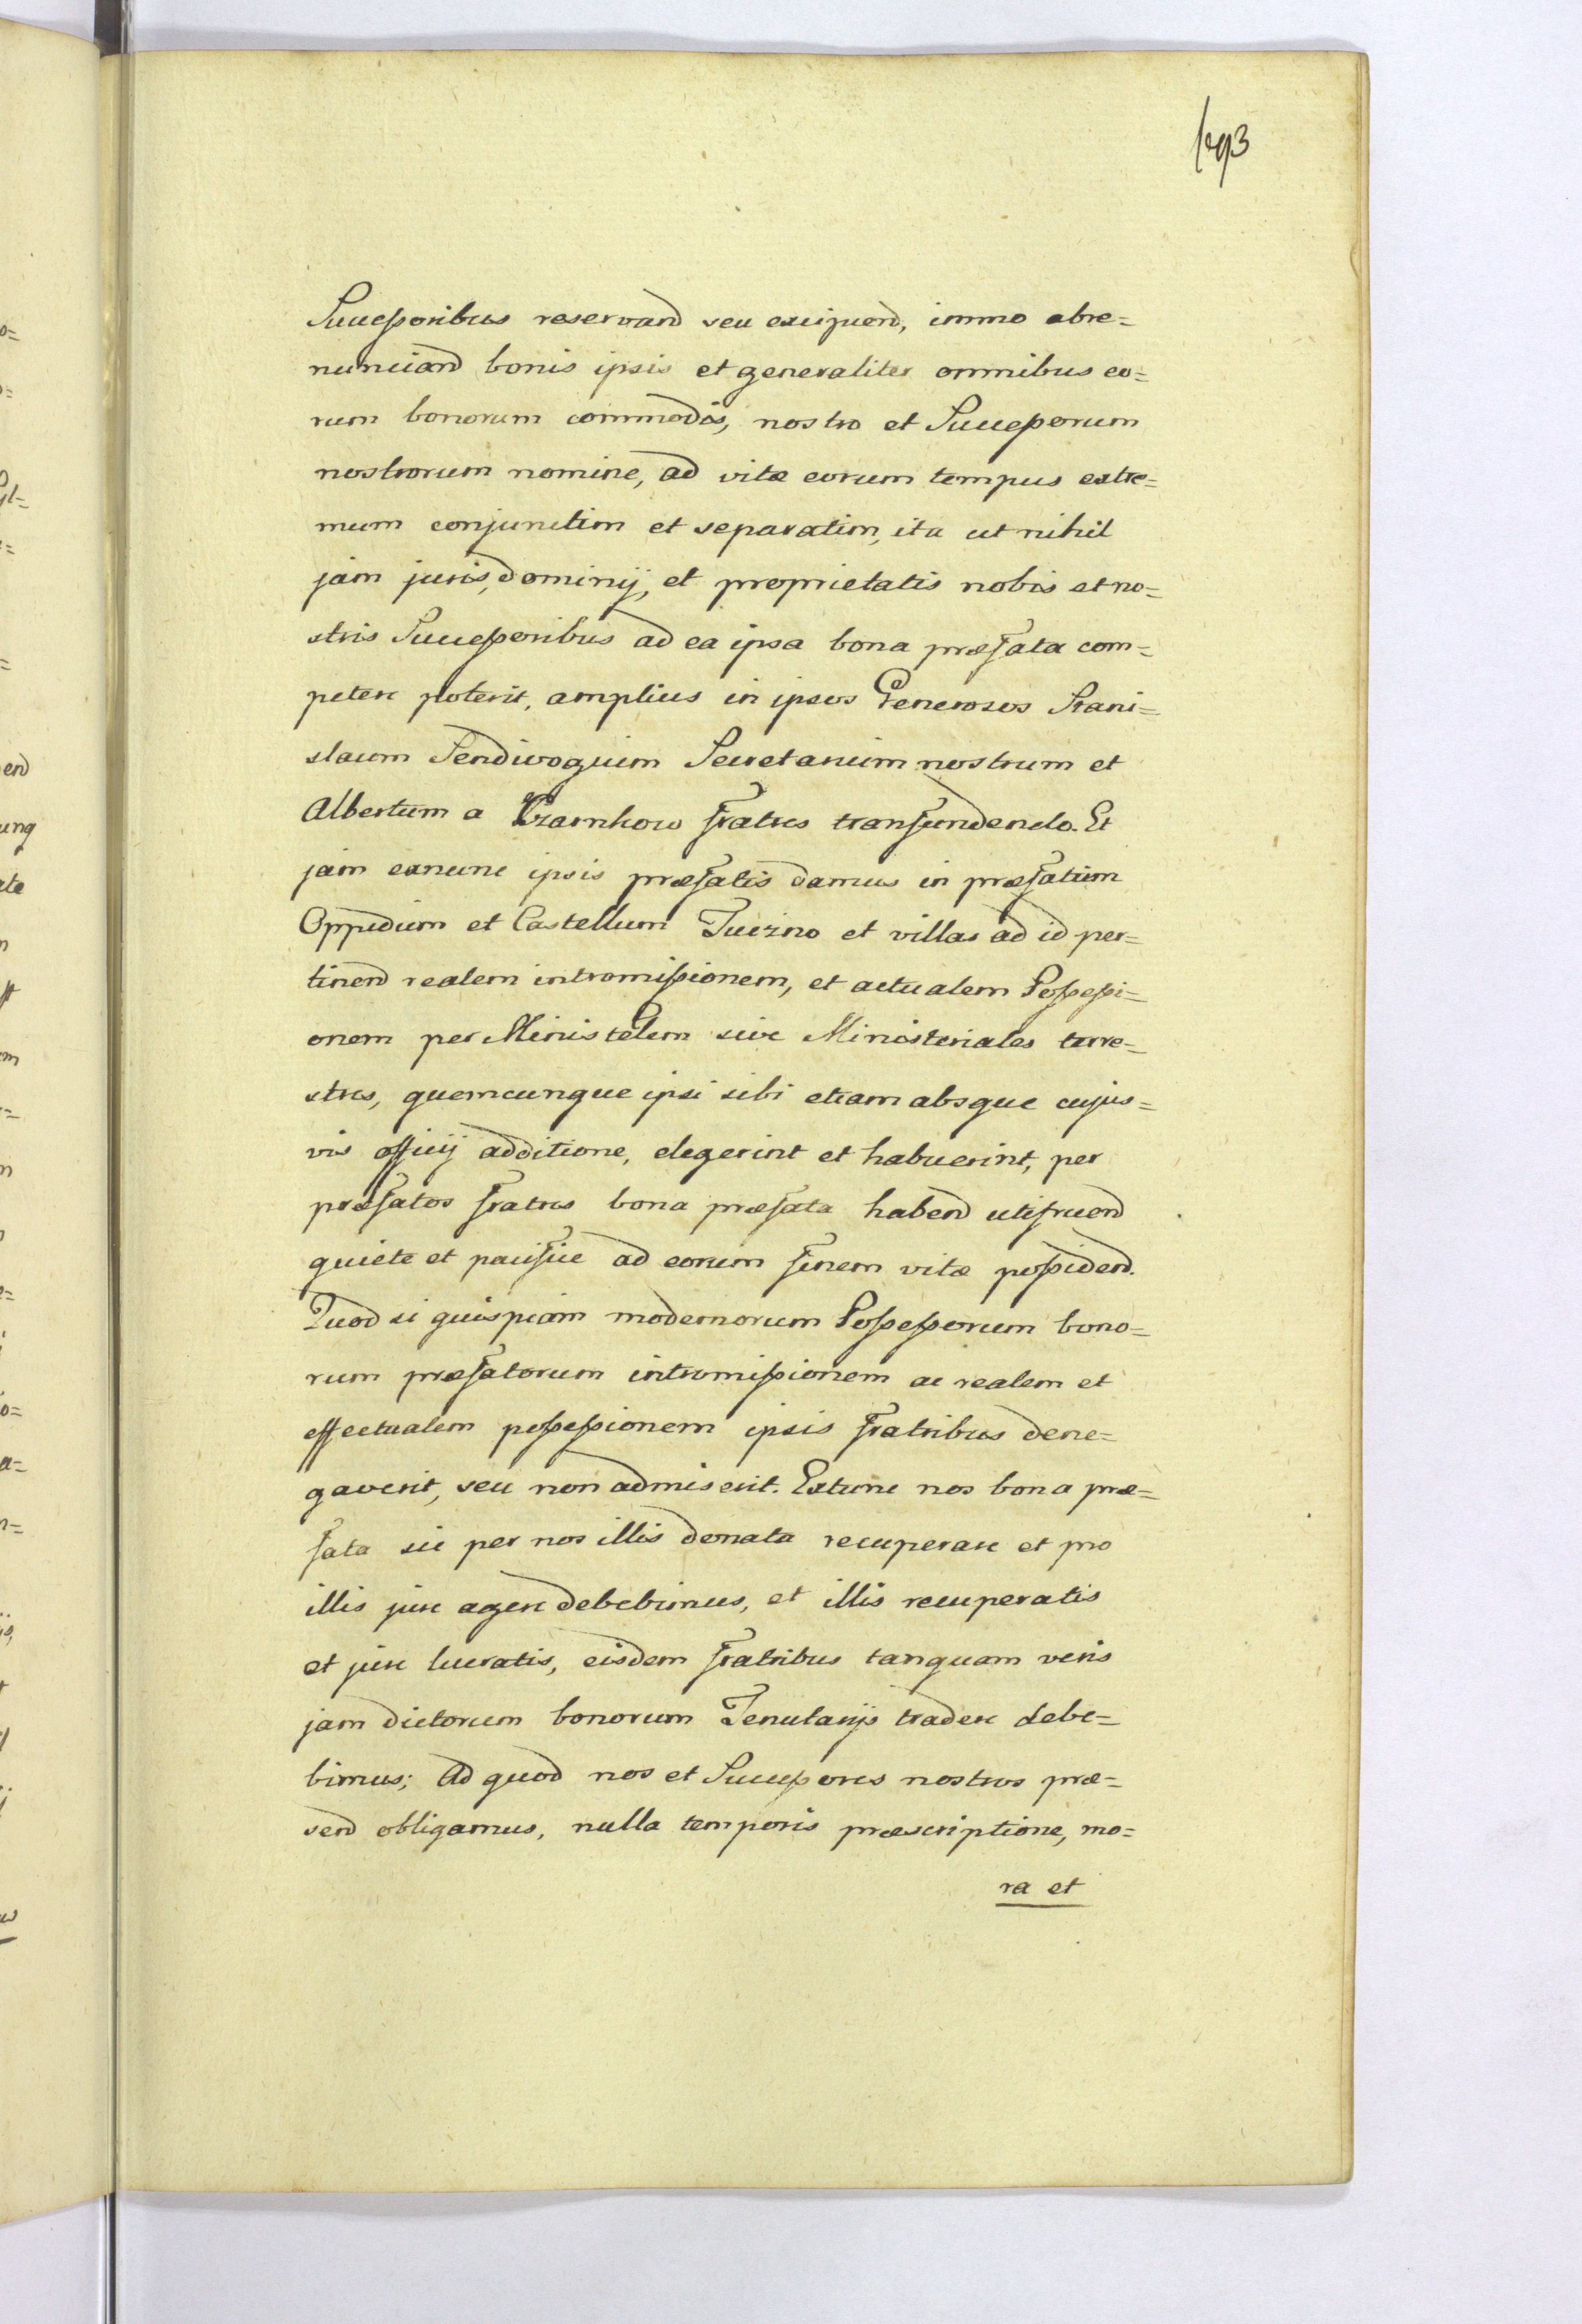 Successoribus reservand seu excipiend, immo abre=
nunciand bonis ipsis et generaliter omnibus eo=
rum bonorum commodis, nostro et Successorum
nostrorum nomine, ad vitæ eorum tempus extre=
mum conjunctim et separatim, ita ut nihil
jam juris, dominij, et proprietatis nobis et no=
stris Successoribus ad ea ipsa bona præfata com=
petere poterit, amplius in ipsos Generosos Stani=
slaum Sendivogium Secretarium nostrum et
Albertum a Czarnkow fratres transfundendo. Et
jam exnunc ipsis præfatis damus in præfatum
Oppidum et Castellum Tuczno et villas ad id per=
tinend realem intromissionem, et actualem Possessi=
onem per Ministelem sive Ministeriales terre=
stres, quemcunque ipsi sibi etiam absque cujus=
vis officij additione, elegerint et habuerint, per
præfatos fratres bona præfata habend utifruend
quiete et pacifice ad eorum finem vitæ possidend.
Quod si quispiam modernorum Possessorum bono=
rum præfatorum intromissionem ac realem et
effectualem possessionem ipsis fratribus dene=
gaverit, seu non admiserit. Extunc nos bona præ=
fata sic per nos illis donata recuperare et pro
illis jure agere debebimus, et illis recuperatis
et jure lucratis, eisdem fratribus tanquam veris
jam dictorum bonorum Tenutarijs tradere debe=
bimus; Ad quod nos et Successores nostros præ=
send obligamus, nulla temporis præscriptione, mo=
ra et